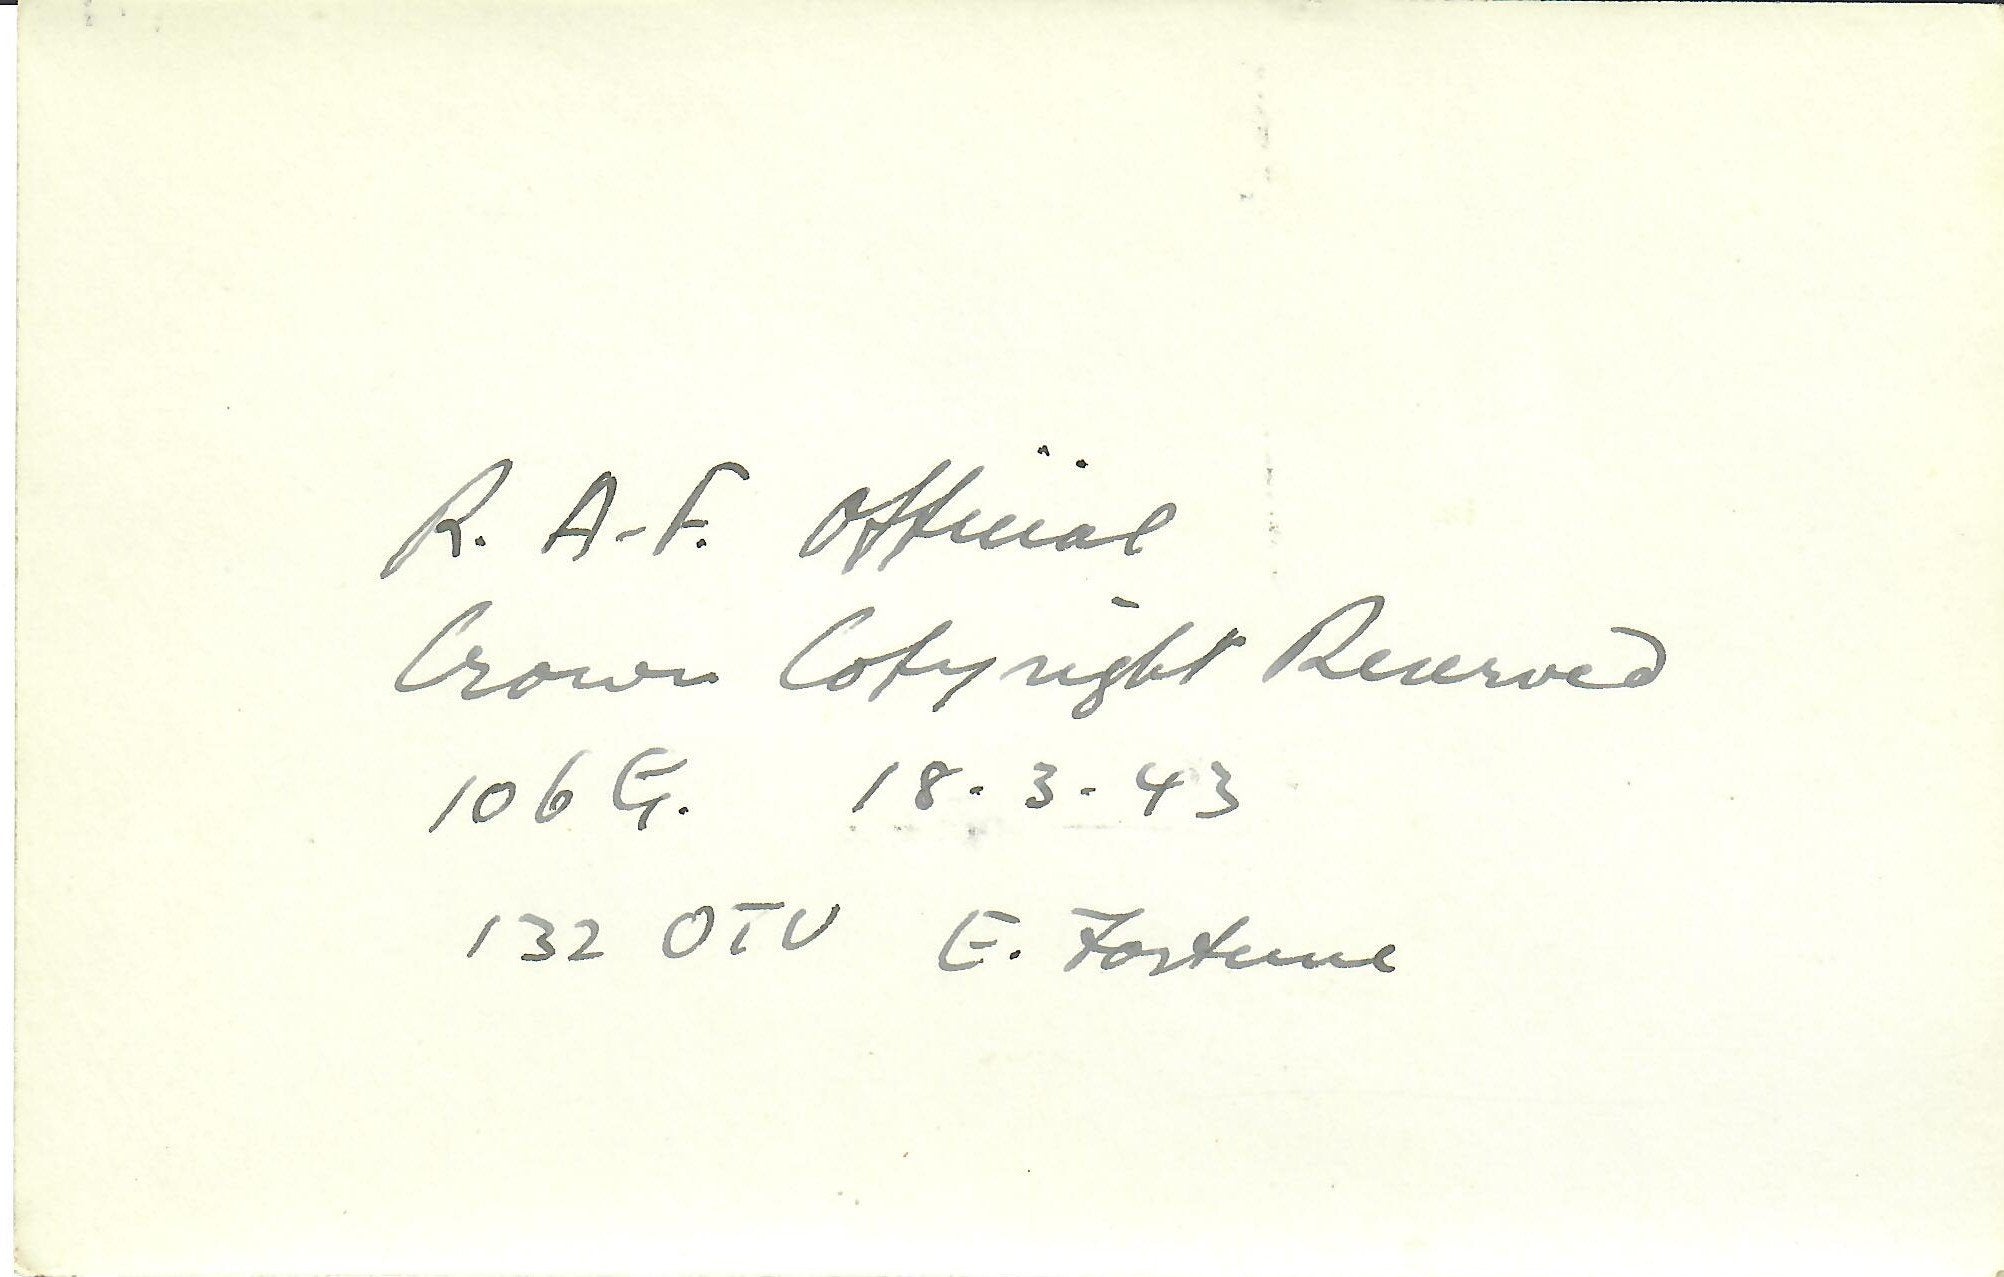 R. A-F. Official
Crown Copyright Reserved
106 G. 18-3-43
132 OTU E. Fortune